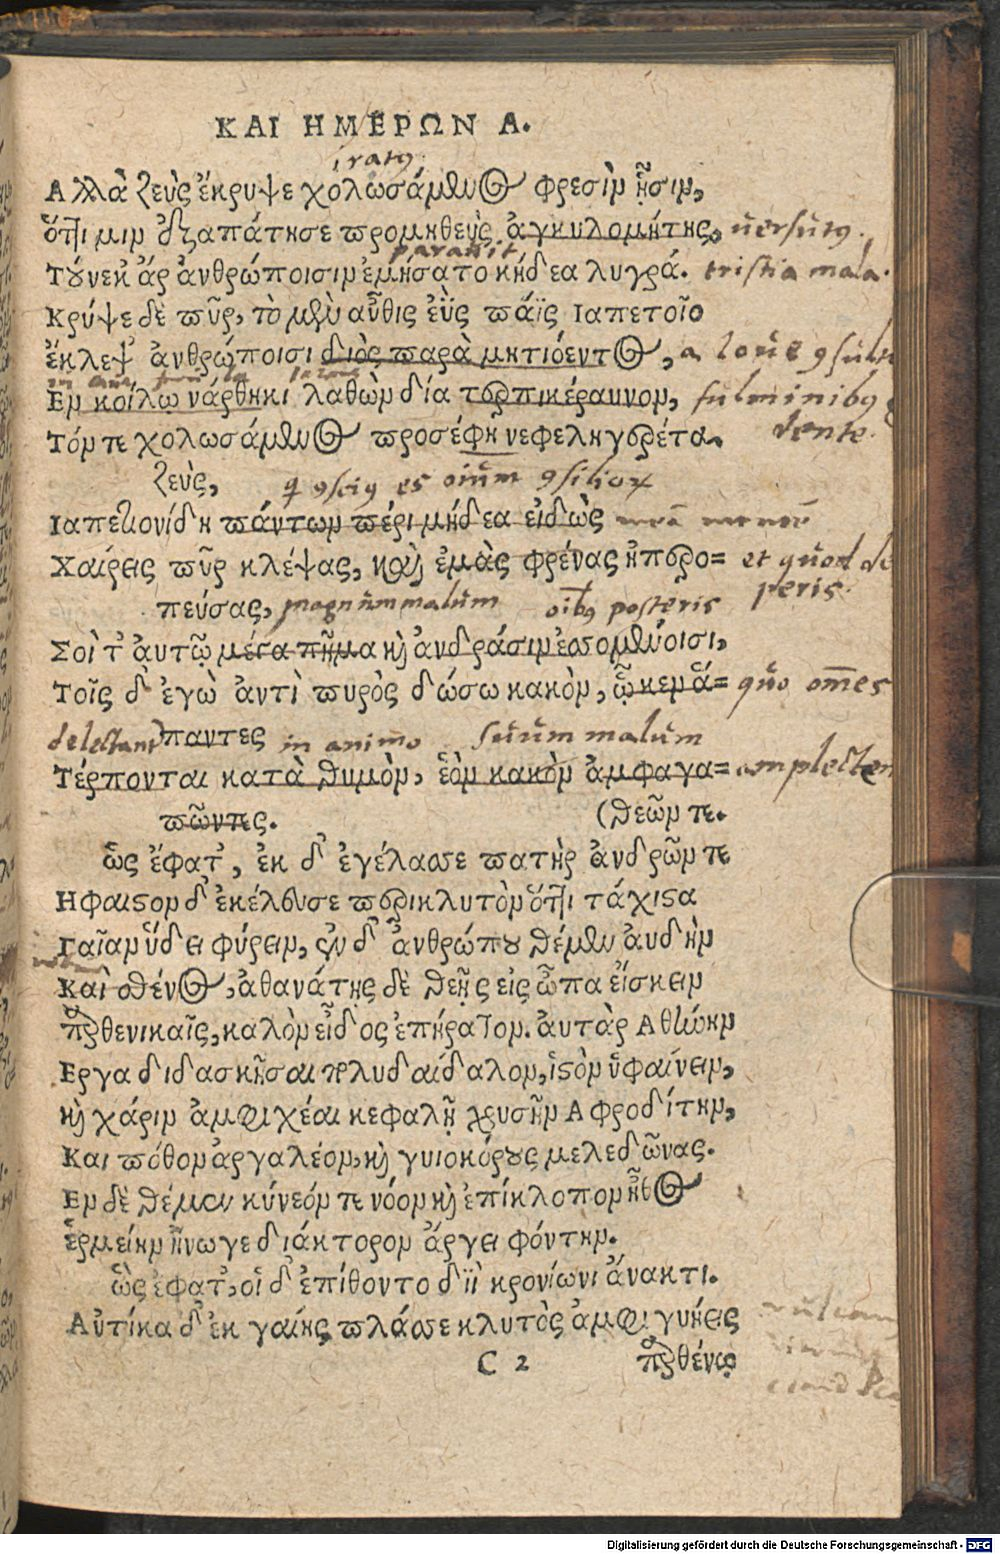 ΚΑΙ ΗΜΕΡΩΝ Α.
iratus
Αλλὰ ζεὺς ἔκρυψε χολωσάμενος φρεσὶν ᾗσιν,
ὅττι μιν ἐξαπάτησε προμηθεὺς ἀγκυλομήτης, uersutus.
paravit
Τούνεκ' ἄρ ἀνθρώποισιν ἐμήσατο κήδεα λυγρά. tristia mala.
Κρύψε δὲ πῦρ, τὸ μὲν αὖθις ἐῢς πάϊς Ιαπετοῖο
ἔκλεψ' ἀνθρώποισι διὸς παρὰ μητιόεντος, a Ioue
Εν κοίλῳ νάρθηκι λαθὼν δία τερπικέραυνον, fulminibus
dente.
Τόν τε χολωσάμενος προσέφη νεφεληγερέτα
ζεὺς, q̃ ꝯscius es oi͞um ꝯsilioꝝ
Ιαπετιονίδη πάντων πέρι μήδεα εἰδὼς
Χαίρεις πῦρ κλέψας, καὶ ἐμὰς φρένας ἠπερο= et quod de
πεύσας, magnum malum oibus posteris peris.
Σοὶ τ' αὐτῷ μέγα πῆμα καὶ ἀνδράσιν ἐσσομένοισι,
Τοῖς δ' ἐγὼ ἀντὶ πυρὸς δώσω κακὸν, ᾧ κεν ἅ= quo om̄es
delectant παντες in animo suum malum
Τέρπονται κατὰ θυμὸν, ἑὸν κακὸν ἀμφαγα= amplecten
πῶντες. (θεῶν τε.
ὣς ἔφατ', ἐκ δ' ἐγέλασσε πατὴρ ἀνδρῶν τε
Ηφαιστον δ' ἐκέλευσε περικλυτὸν ὅττι τάχιστα
Γαῖαν ὕδει φύρειν, ἐν δ' ἀνθρώπου θέμεν αὐδὴν
Καὶ σθένος, ἀθανάτῃς δὲ θεῇς εἰς ὦπα εἴσκειν
Παρθενικαῖς, καλὸν εἶδος ἐπήρατον. αὐτὰρ Αθήνην
Εργα διδασκῆσαι πολυδαίδαλον, ἱστὸν ὑφαίνειν,
καὶ χάριν ἀμφιχέαι κεφαλῇ χρυσῆν Αφροδίτην,
Και πόθον ἀργαλέον, καὶ γυιοκόρους μελεδῶνας.
Εν δὲ θέμεν κύνεόν τε νόον καὶ ἐπίκλοπον ἦθος
ἑρμείην ἤνωγε διάκτορον ἀργειφόντην.
ὣς ἔφατ', οἱ δ' ἐπίθοντο διῒ κρονίωνι ἄνακτι.
Αὐτίκα δ' ἐκ γαίης πλάσσε κλυτὸς ἀμφιγυήεις
C 2 παρθένῳ
Digitalisierung gefördert durch die Deutsche Forschungsgemeinschaft - DFG